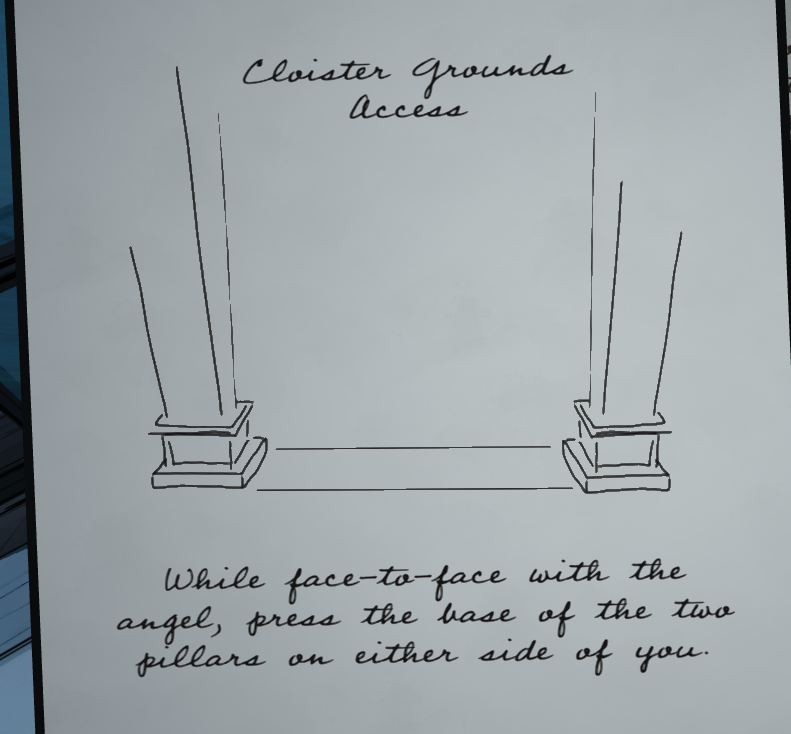 Cloister Grounds
Access
While face-to-face with the
angel, press the base of the two
pillars on either side of you.